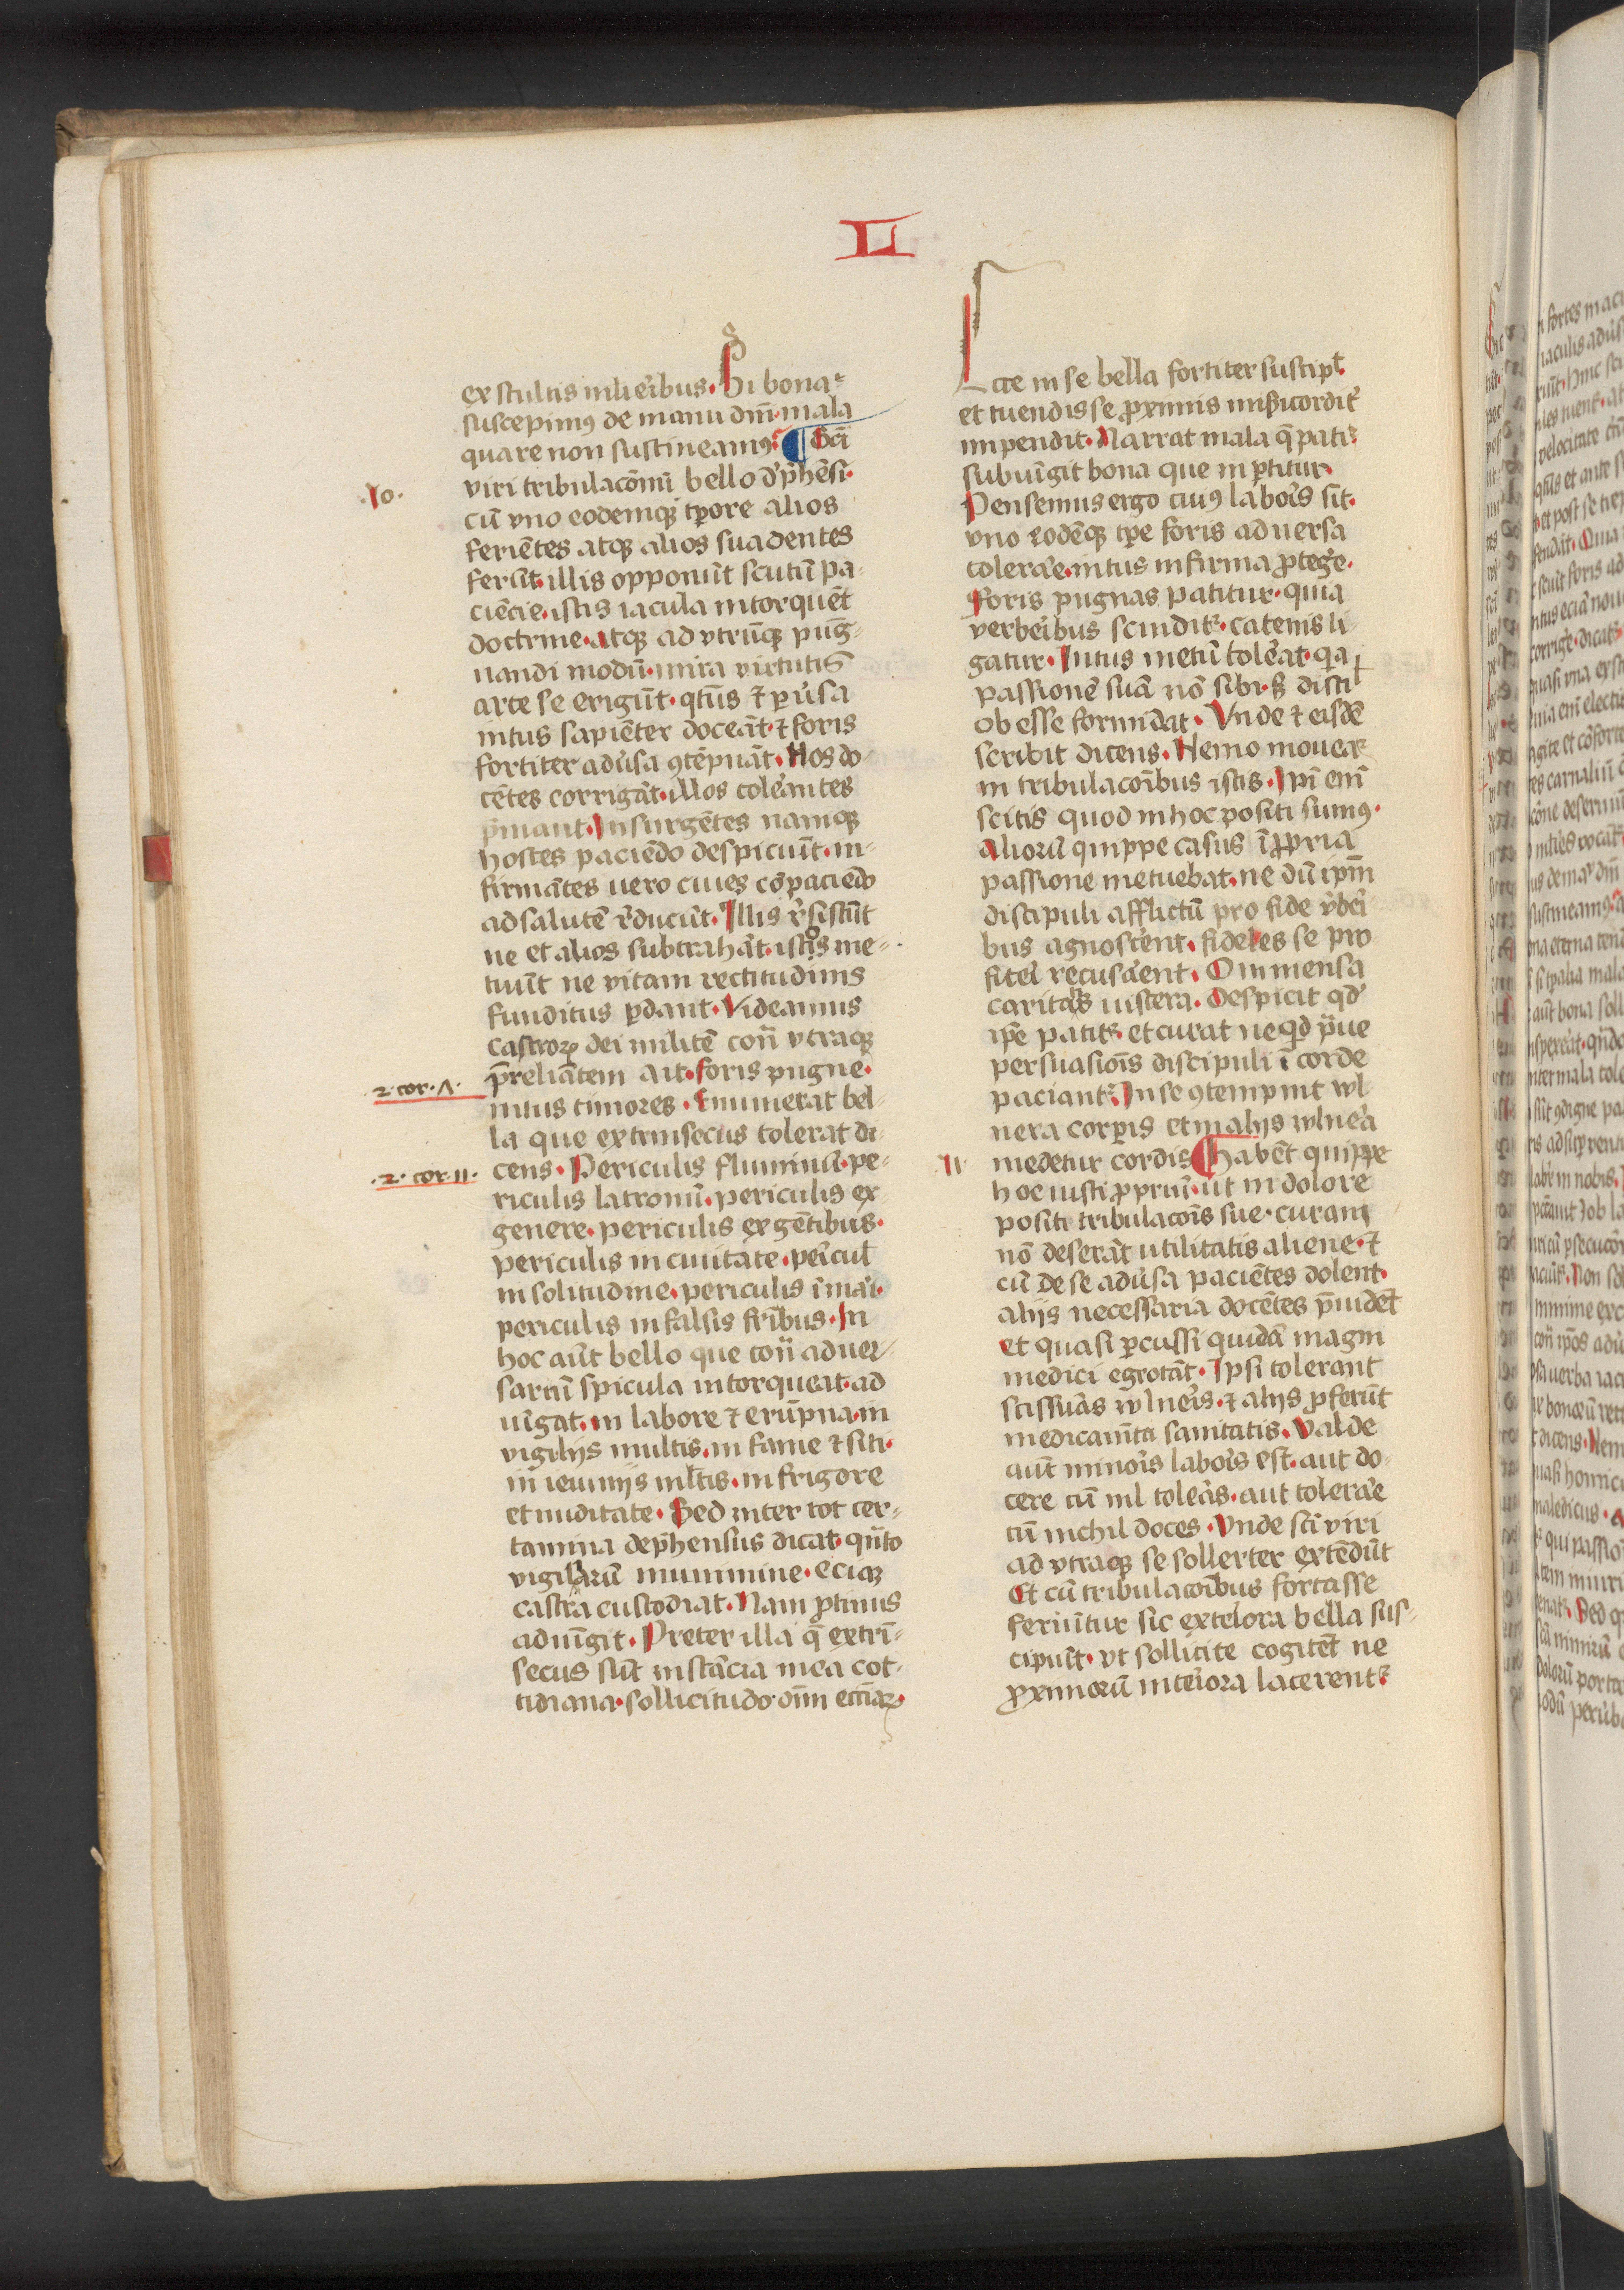 LI
ex stultis mlieribus. Si bona
suscepimꝰ de manu dnī. mala
quare non sustineamꝰ. ¶ Sci
.10.
viri tribulacōnū bello dꝓhēsi.
cū vno eodemqꝫ tꝑore alios
feriētes atqꝫ alios suadentes
ferūt. illis opponūt scutū pa-
ciēcie. istis iacula intorquēt
doctrine. atqꝫ ad vtrūqꝫ pug-
nandi modū. mira virtutis
arte se erigūt. qtūs ⁊ ꝑuˀsa
intus sapiēter doceāt. ⁊ foris
fortiter aduˀsa ꝯtēpnāt. Hos do-
cētes corrigāt. illos toleˀantes
pˀmant. Insurgētes namqꝫ
hostes paciēdo despiciūt. in-
firmātes uero ciues cōpaciēdo
ad salutē rˀducūt. Illis rˀsistūt
ne et alios subtrahāt. istis me-
tuūt ne vitam rectitudinis
funditus ꝑdant. Videamus
castroꝝ dei militē cont̄ vtraqꝫ
p̄reliātem ait. foris pugne.
.2. cor. 7.
intus timores. Enumerat bel-
la que extrinsecus tolerat di-
cens. Periculis fluminū. pe-
.2. cor. 11.
riculis latronū. periculis ex
genere. periculis ex gētibus.
periculis in ciuitate. peˀicul
in solitudine. periculis ī maˀi.
periculis in falsis frībus. In
hoc aūt bello que cont̄ aduer-
sariū spicula intorqueat. ad
uīgat. in labore ⁊ erūpna. in
vigilijs multis. in fame ⁊ siti.
in ieiunijs mltis. in frigore
et nuditate. Sed inter tot cer-
tamina dep̄hensus dicat. qn̄to
vigiliarū munimine. eciāꝫ
castra custodiat. Nam ꝓtinus
adiūgit. Preter illa q̄ extrī-
secus sūt instācia mea cot-
tidiana. sollicitudo oīm ecc̄iaꝝ.
Ecce in se bella fortiter suscipt.
et tuendis se ꝓximis misˀicorditˀ
impendit. Narrat mala q̄ patiꝰ
subiūgit bona que inꝑtitur.
Pensemus ergo cuiꝰ laboˀis sit.
vno eodēqꝫ tꝑe foris aduersa
toleraˀe. intus infirma ꝓtegeˀe.
Foris pugnas patitur. quia
verbeˀibus scinditꝛ. catenis li-
gatur. Intus metū toleˀat. qˀa
passionē suā nō sibi. sꝫ disci
obesse formidat. Vnde ⁊ eisdē
scribit dicens. Nemo moueatꝛ
in tribulacōībus istis. Ipī enī
scitis quod in hoc positi sumꝰ.
Aliorū quippe casus ī ꝓpria
passione metuebat. ne dū ipm̄
discipuli afflictū pro fide vˀbeˀi
bus agnosceˀent. fideles se pro
fiteˀi recusaˀent. O inmensa
caritatis uiscera. Despicit qd
ipē patitꝛ. et curat ne qd pˀue
persuasioīs discipuli ī corde
paciantꝛ. In se ꝯtempnit vul
nera corꝑis et malis vulneˀa
medetur cordis. ¶ habēt quippe
11.
hoc iusti ꝓpriū. ut in dolore
positi tribulacōīs sue. curam
nō deserāt utilitatis aliene. ⁊
cū de se aduˀsa paciētes dolent.
alijs necessaria docētes p̄uidēt
et quasi ꝑcussi quidā magni
medici egrotāt. Ipsi tolerant
scissuˀas vulneˀis. ⁊ alijs ꝓferūt
medicamīta sanitatis. Valde
aūt minoˀis laboˀis est. aut do-
cere cū nil toleˀas. aut toleraˀe
cū nichil doces. Vnde sci viri
ad vtraqꝫ se sollerter extēdūt
Et cū tribulacōībus fortasse
feriūtur sic exteˀiora bella sus-
cipiūt. vt sollicite cogitēt ne
ꝓximorū inteˀiora lacerentꝛ.